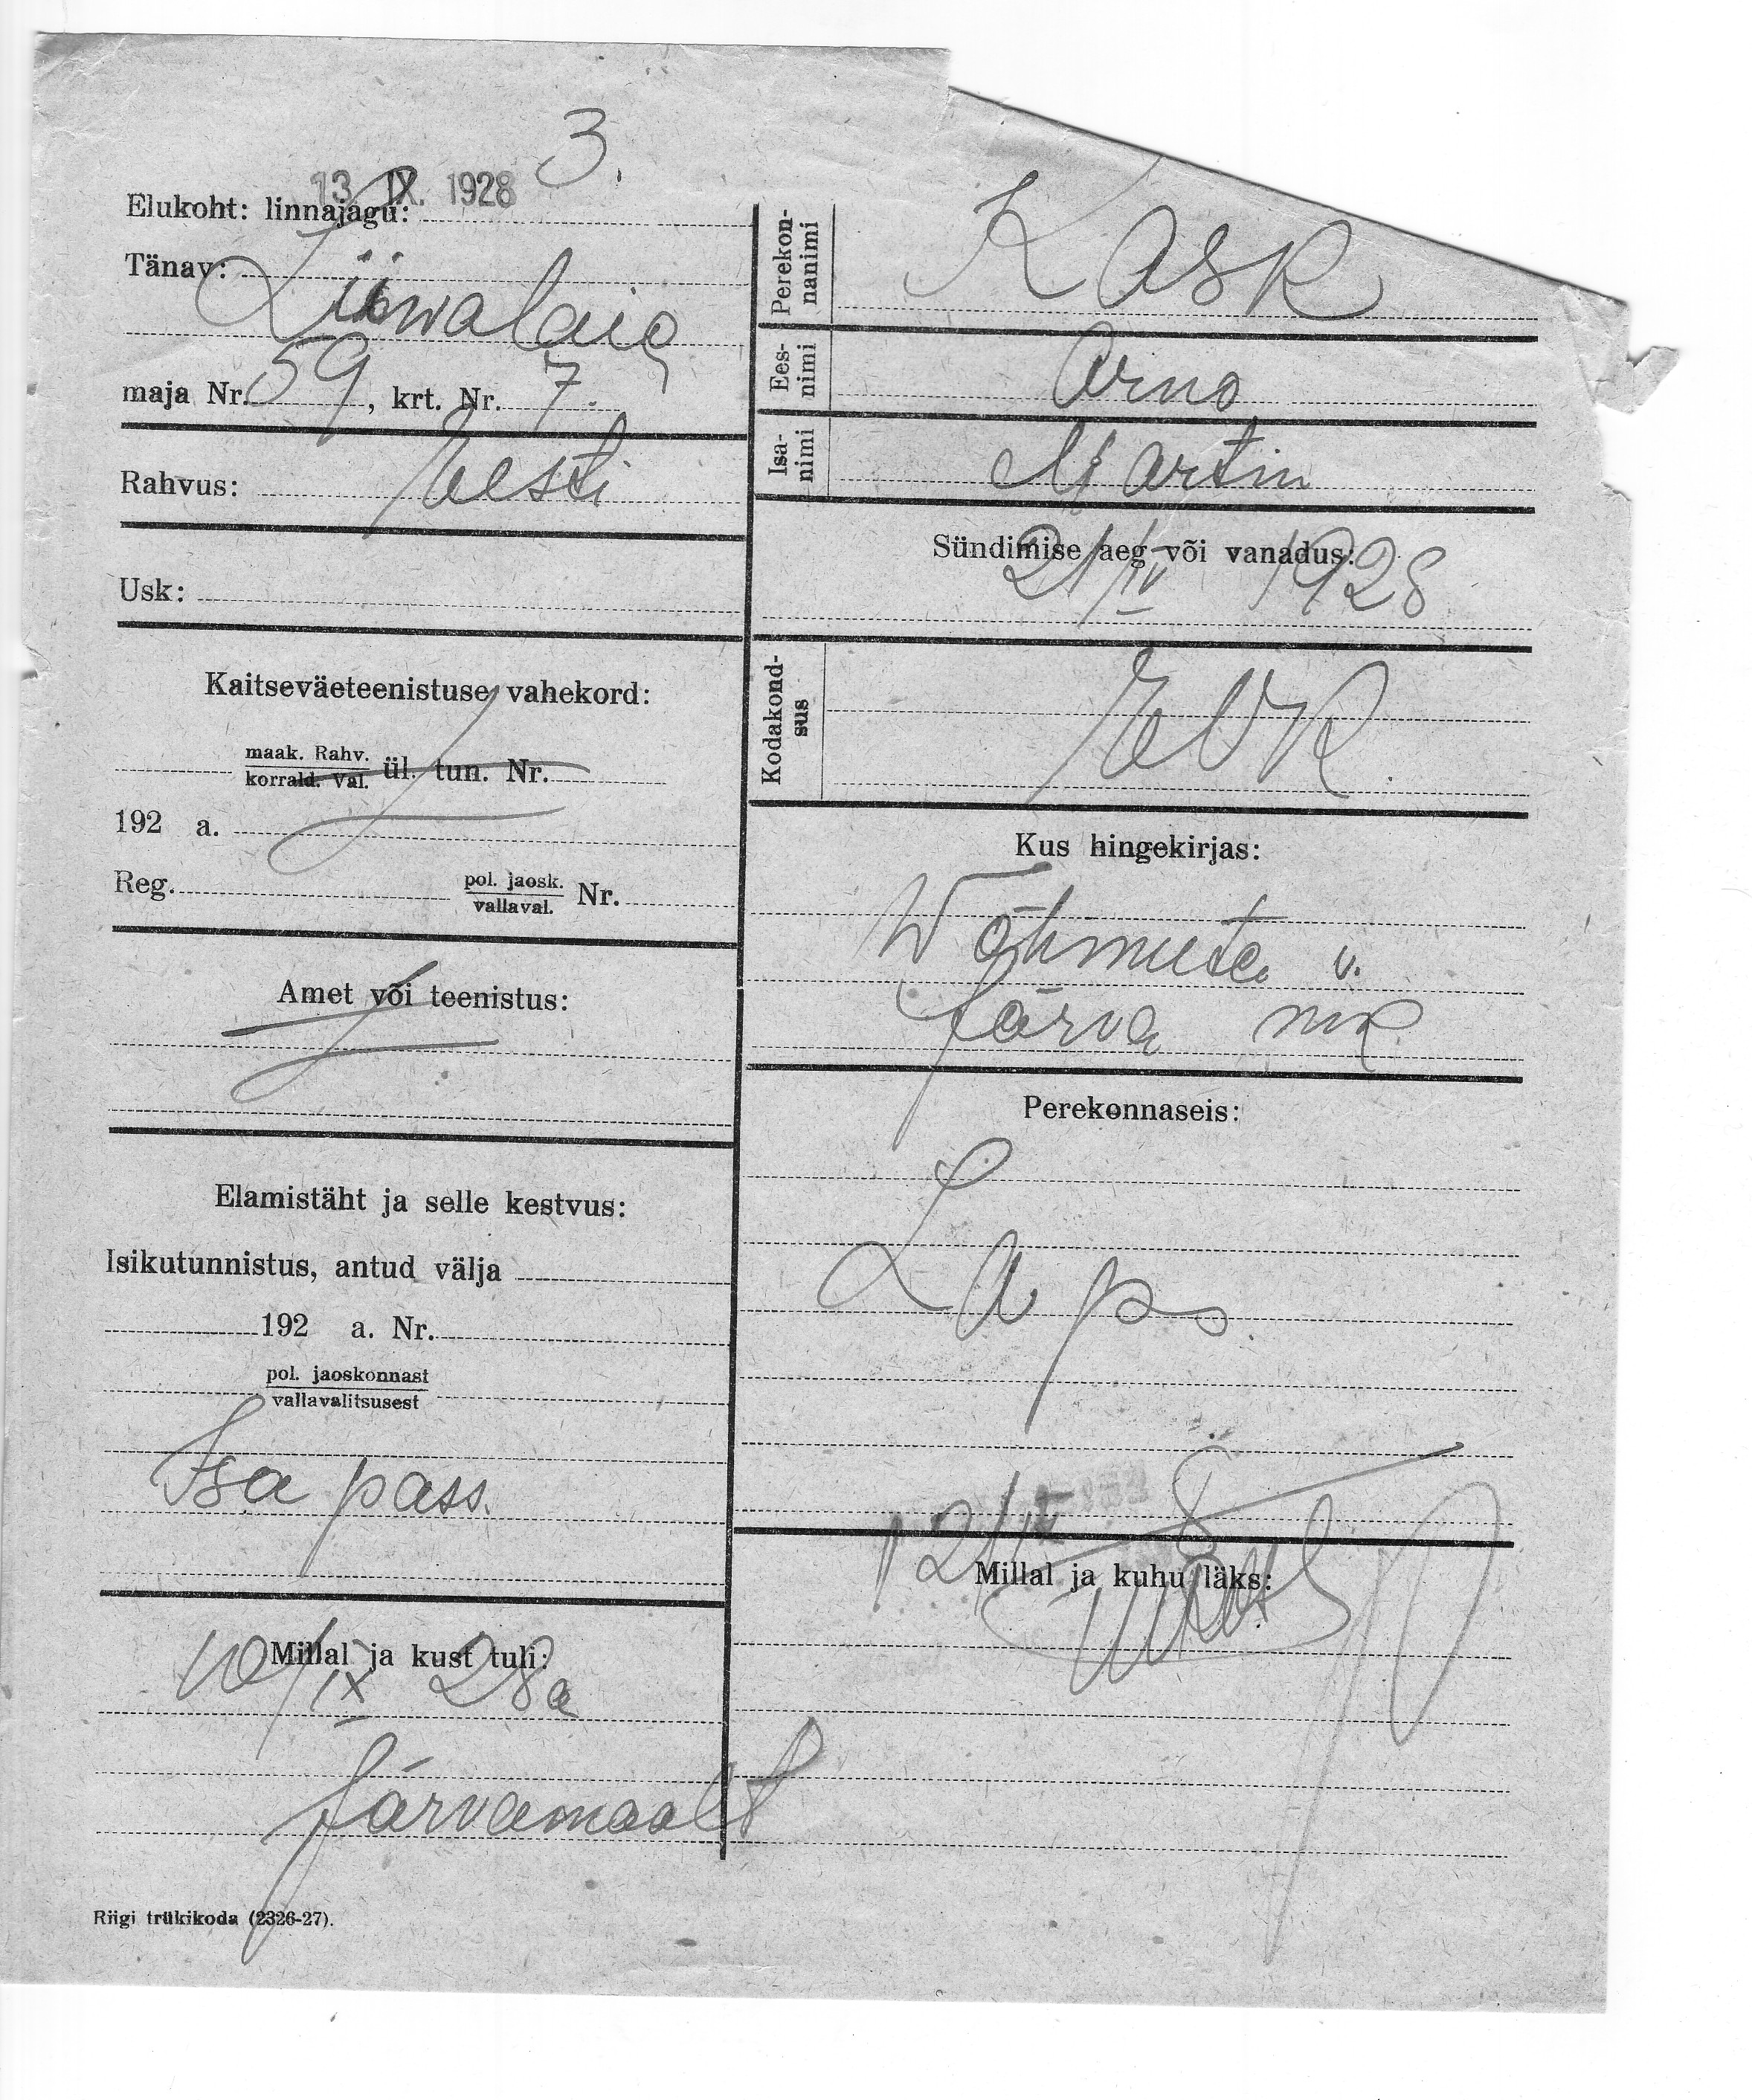 3.
13 IX. 1928
Elukoht: linnajagu:
Tänav: Liiwalaia
maja Nr. 59, krt. Nr. 7.
Rahvus: Eesti
Usk:
Kaitseväeteenistuse vahekord:
maak. Rahv.
korrald. Val. ül. tun. Nr.
192 a.
Reg. pol. jaosk.
vallaval. Nr.
Amet või teenistus:
Elamistäht ja selle kestvus:
Isikutunnistus, antud välja
192 a. Nr.
pol. jaoskonnast
vallavalitsusest
Isa pass.
Millal ja kust tuli:
10/IX 28a
Järvamaalt
Riigi trükikoda (2326-27).
Perekon-
nanimi
Kask
Ees-
nimi
Arno
Isa-
nimi
Martin
Sündimise aeg või vanadus:
21/IV 1928
Kodakond-
sus
EVK.
Kus hingekirjas:
Wõhmuta v.
Järva mk
Perekonnaseis:
Laps.
Millal ja kuhu läks: